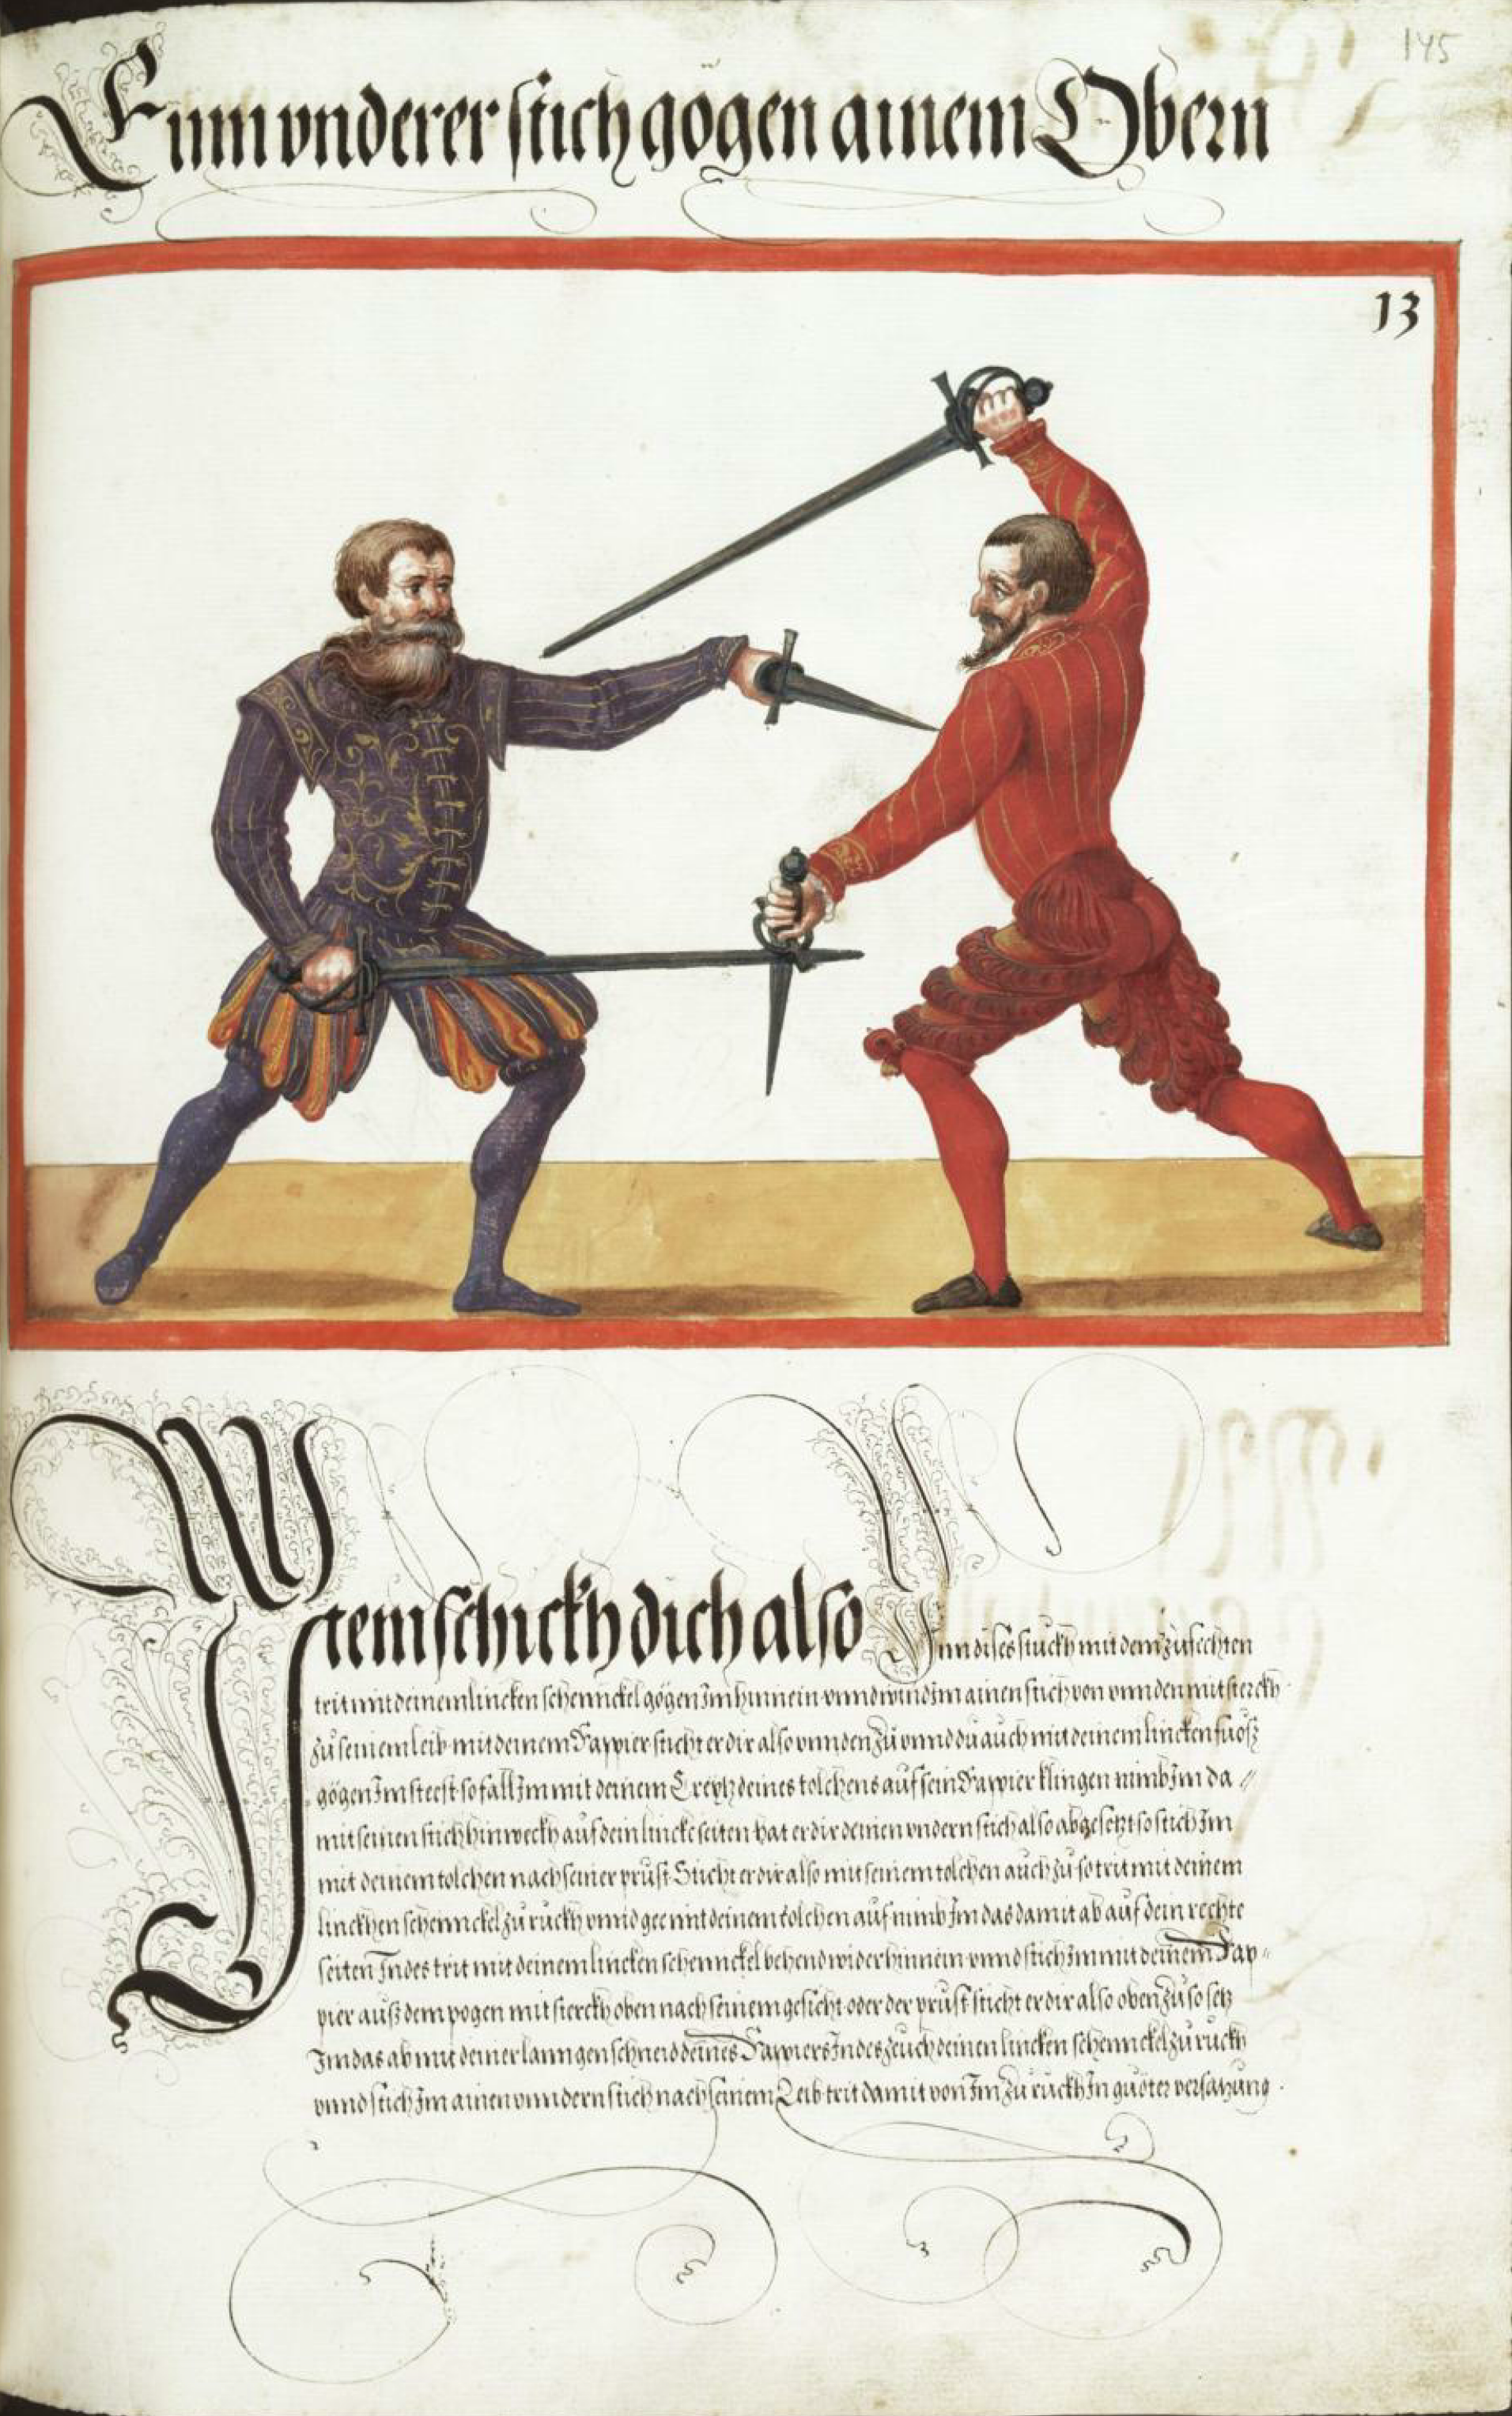 145
Ein vnnderer stich gögen ainem Obern
13
Item schickh dich also Inn dises stuckh mit dem zufechten
trit mit deinem lincken schennckel gögen Im hinnein vnnd wind Im ainen stich von vnnden mit sterckh
zu seinem leib mit deinem Rappier sticht er dir also vnnden zu vnnd du auch mit deinem lincken fuosz
gögen Im steest so fall Im mit deinem Creytz deines tolchens auf sein Rappier klingen nimb Im da //
mit seinen stich hinweckh auf dein lincke seiten hat er dir deinen vndern stich also abgesetzt so stich Im
mit deinem tolchen nach seiner prust Sticht er dir also mit seinem tolchen auch zu so trit mit deinem
linckhen schennckel zu ruckh vnnd gee mit deinem tolchen auf nimb Im das damit ab auf dein rechte
seiten Indes trit mit deinem lincken schennckel behend wider hinnein vnnd stich Im mit deinem Rap //
pier ausz dem pogen mit sterckh oben nach seinem gesicht oder der prust sticht er dir also oben zu so setz
Im das ab mit deiner lanngen schneid deines Rappiers Indes zeuch deinen lincken schennckel zu ruckh
vnnd stich Im ainen vnndern stich nach seinem Leib trit damit von Im zu ruckh In guoter versatzung .